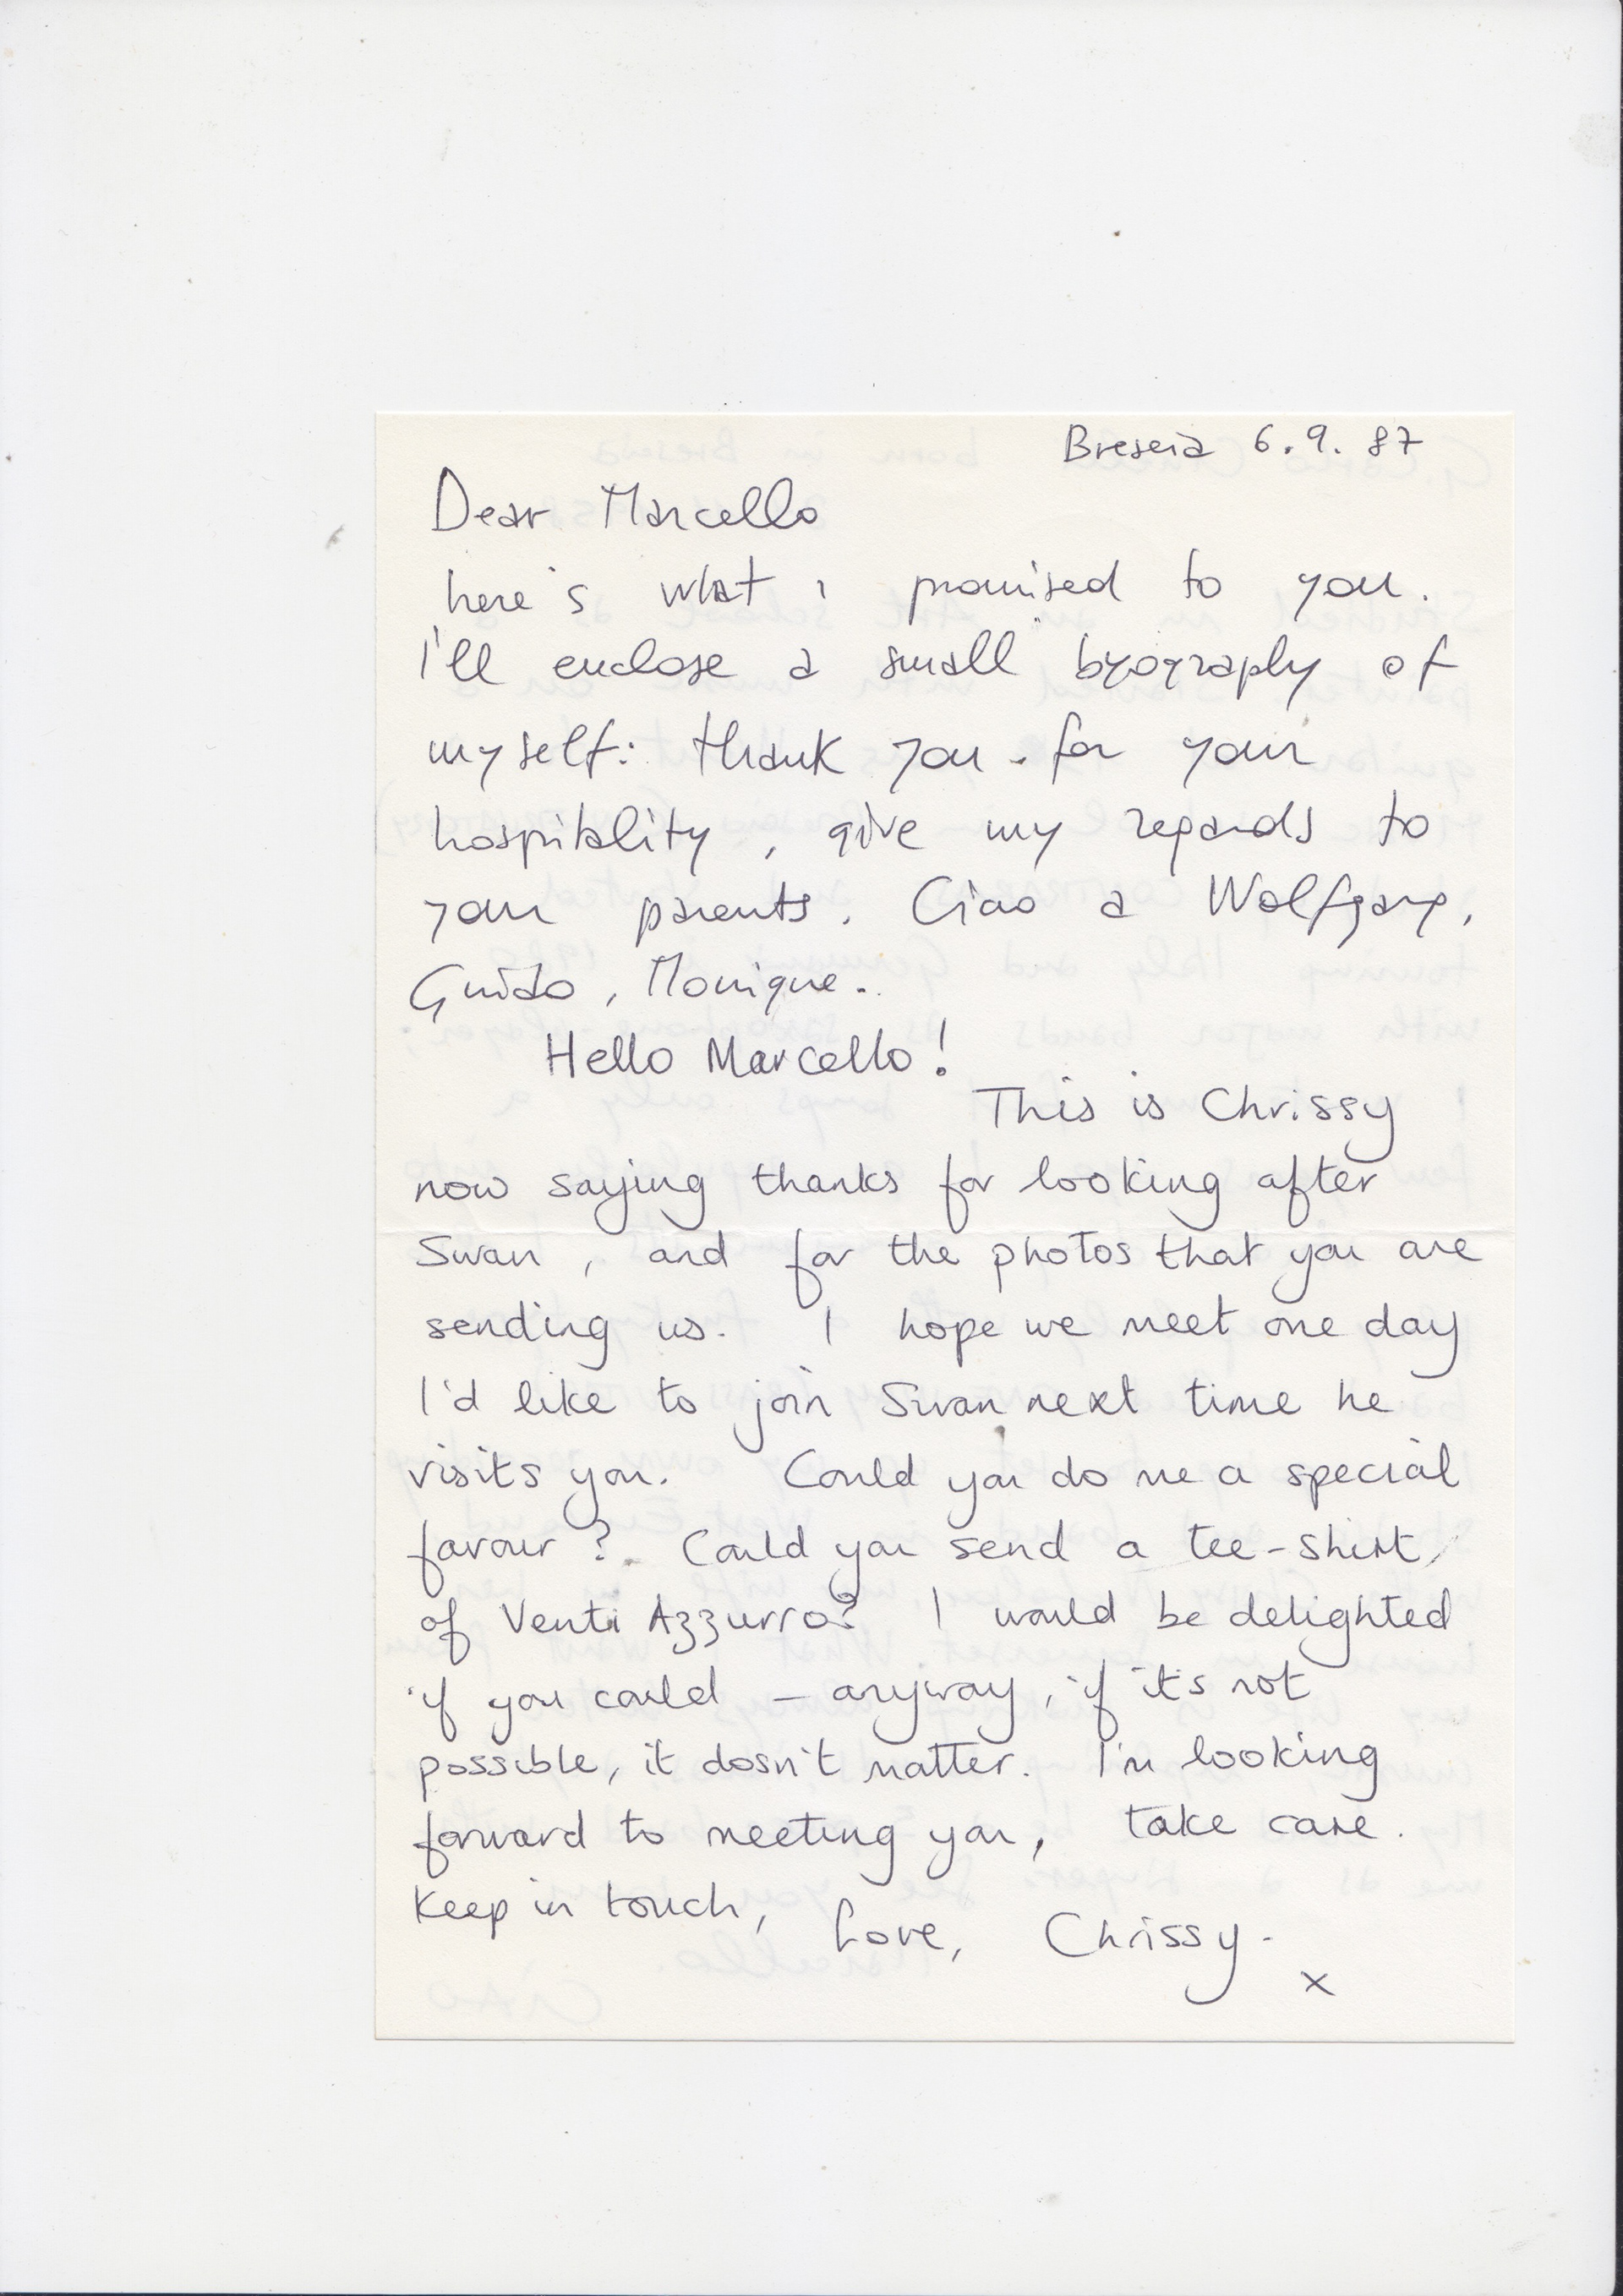 Brescia 6.9.87
Dear Marcello
here's what i promised to you.
I'll enclose a small byography of
myself: thank you for your
hospitality, give my regards to
your parents. Ciao a Wolfgang,
Guido, Monique.
Hello Marcello!
This is Chrissy
now saying thanks for looking after
Swan, and for the photos that you are
sending us. I hope we meet one day
I'd like to join Swan next time he
visits you. Could you do me a special
favour? Could you send a tee-shirt
of Venti Azzurro? I would be delighted
if you could - anyway, if it's not
possible, it dosn't matter. I'm looking
forward to meeting you, take care.
Keep in touch, Love, Chrissy.
x